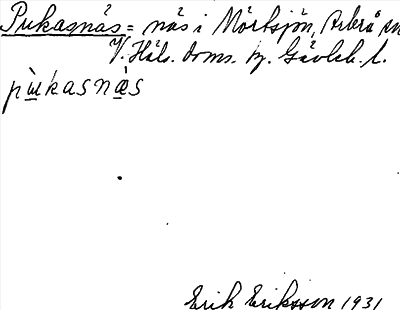 Pukasnäs = näs i Mörtsjön, Arbrå sn
V. Häls. doms. hg. Gävleb. l.
pùkasnä̀s
Erik Eriksson 1931